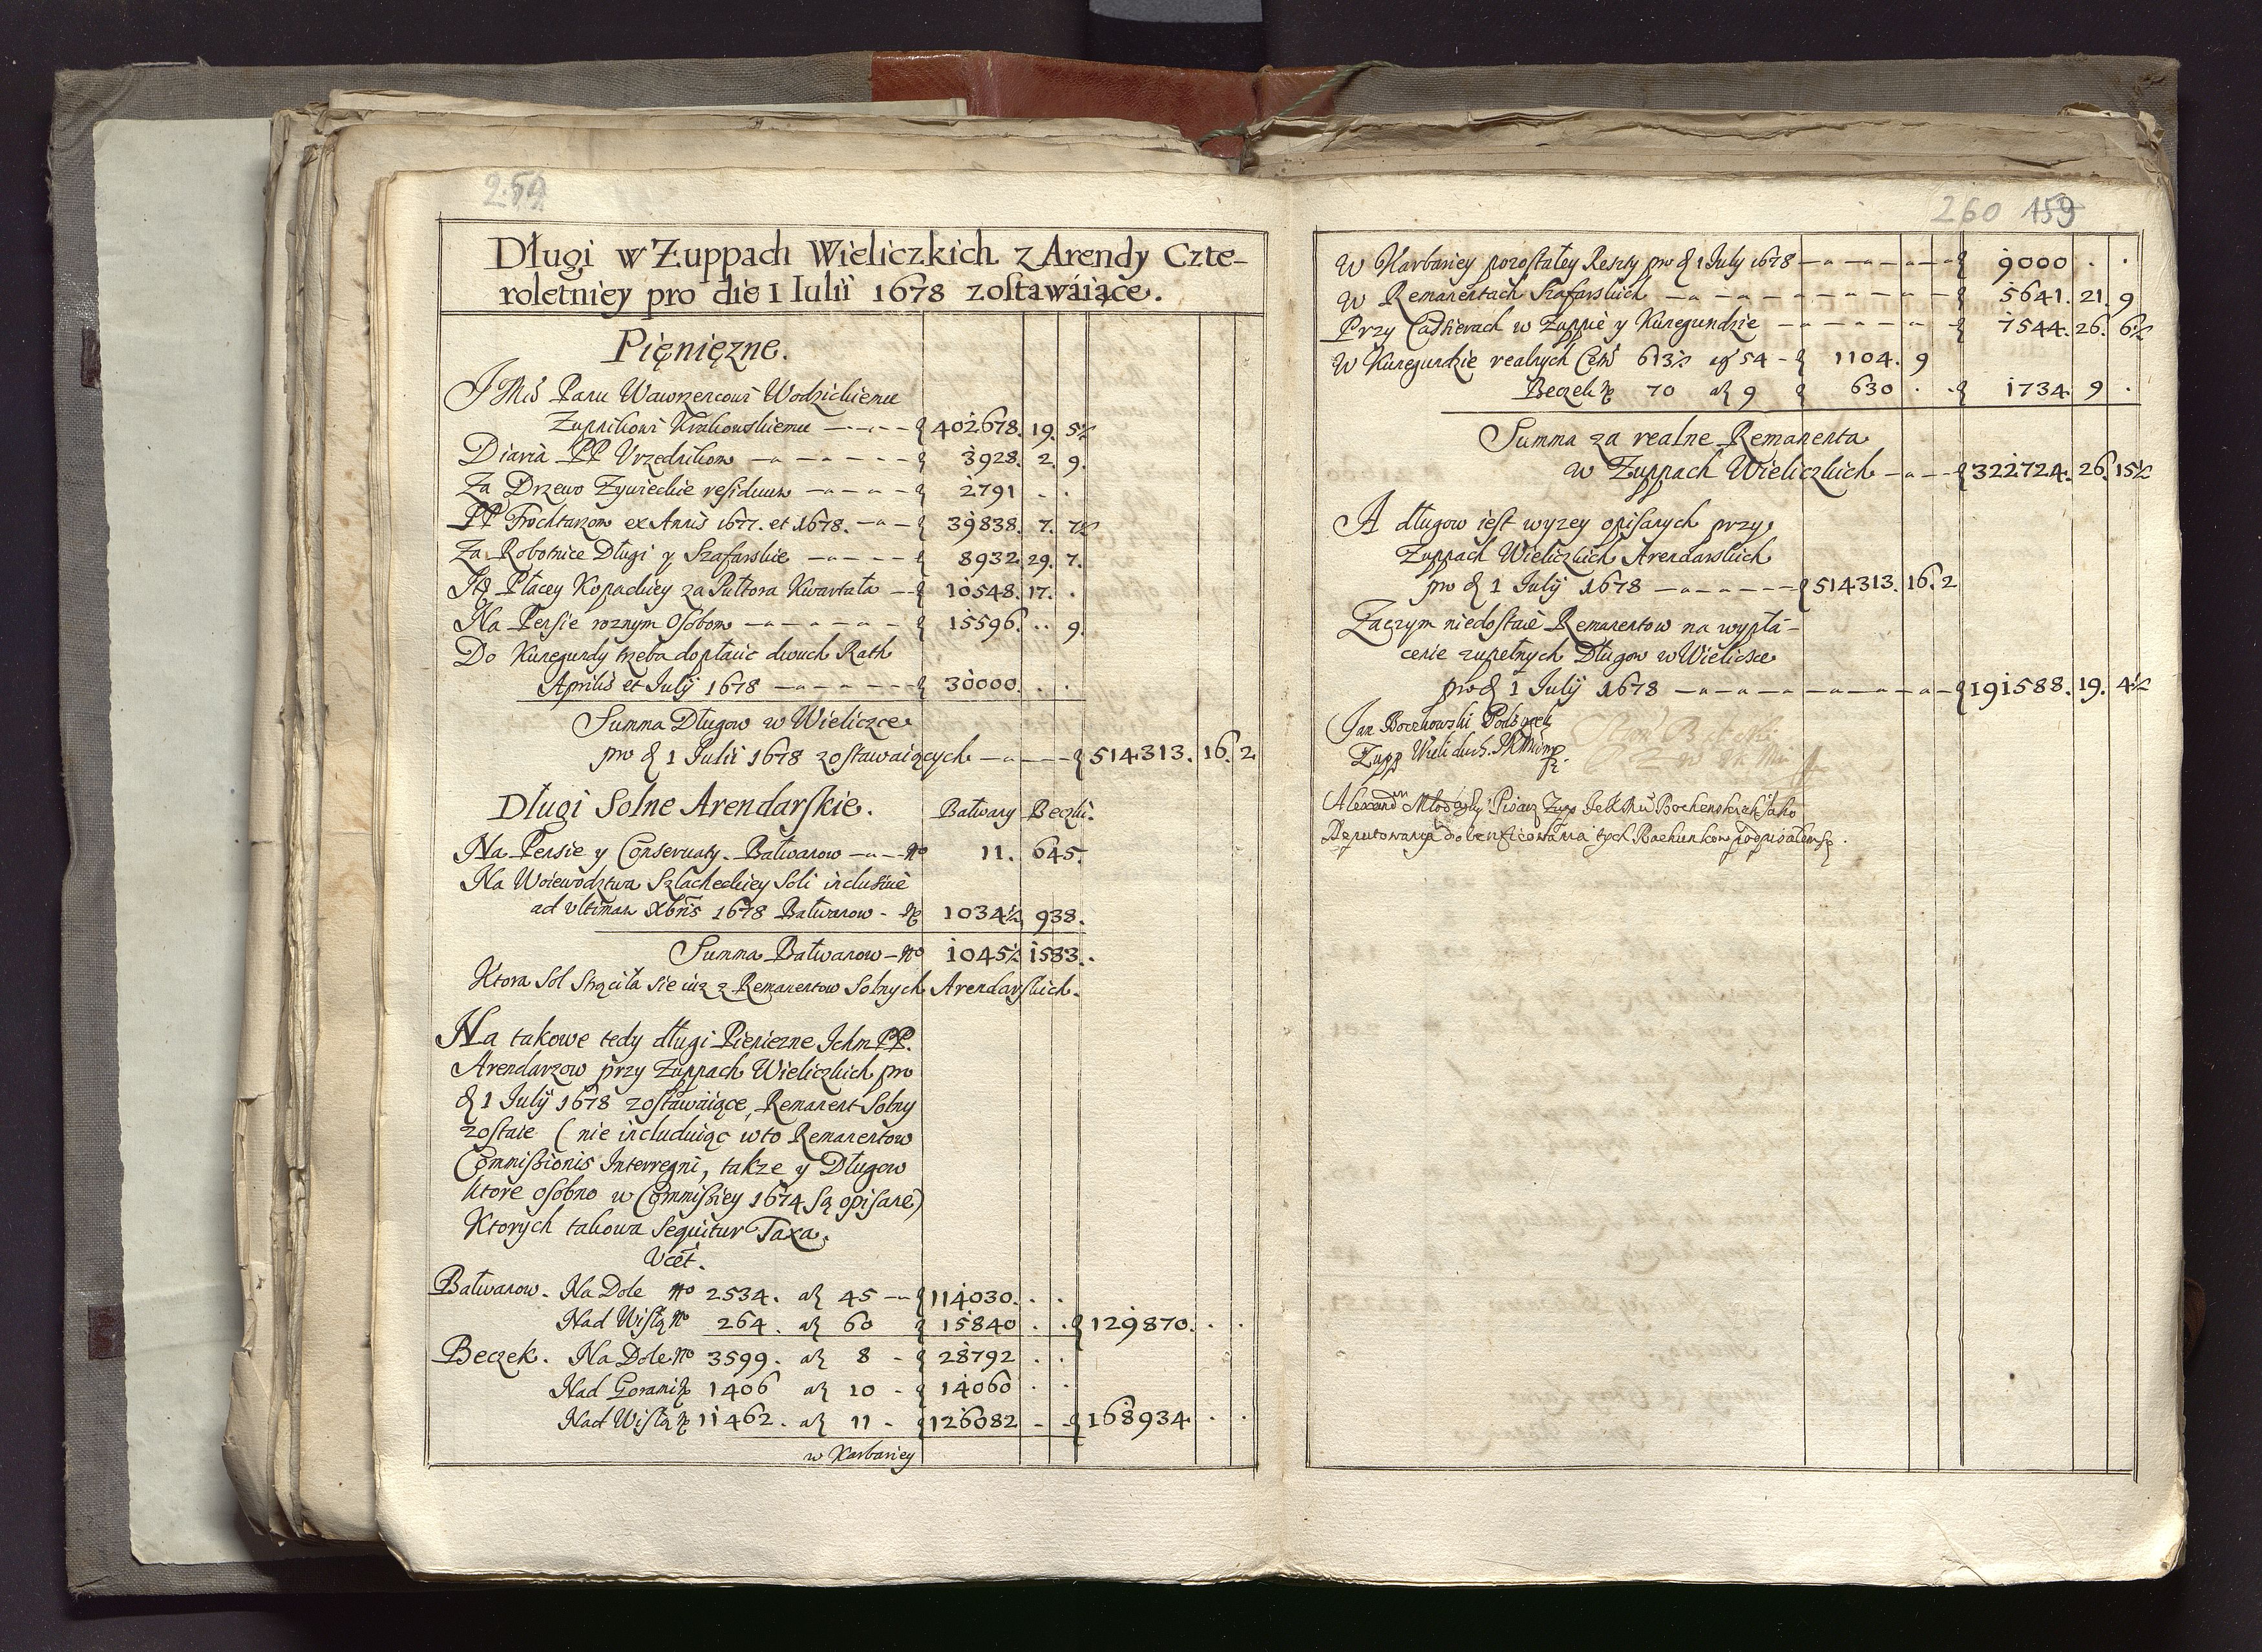 259
Długi w Żuppach Wieliczkich z Arendy Czte-
roletniey pro die 1 Iulii 1678 zostawáiące.
Pięnięzne.
J Mś Panu Wawrzencowi Wodzickiemu
Zuppnikowi Krakowskiemu 402678. 19. 5½
Diaria PP Vrzędnikow 3928. 2. 9.
Za Drzewo Zywieckie residuum 2791 . .
PP Frochtarzom ex Annis 1677. et 1678. 39838. 7. 7½
Za Robotnice Długi y Szafarskie 8932. 29. 7.
Płacey Kopackiey za Pułtora Kwartała 10548. 17. .
Na Pensie roznym Osobom 15596. . . 9.
Do Kunegundy trzeba dopłacic dwuch Rath
Aprilis et Julÿ 1678 30000. . .
Summa Długow w Wieliczce
pro d 1 Julii 1678 zostawaiących 514313. 16. 2
Długi Solne Arendarskie. Bałwany Beczki.
Na Pensie y Conservaty. Bałwanow no 11. 645.
Na Woiewodztwa Szlacheckiey Soli inclusiue
ad vltimam Xbris 1678 Bałwanow - No 1034½ 938.
Summa Bałwanow - no 1045½ 1583.
Ktora Sol Strąciła sie iuz z Remanentow Solnych Arendarskich.
Na takowe tedy długi Pieniezne Ichm PP.
Arendarzow przy Zuppach Wieliczkich pro
d 1 Julÿ 1678 zostawaiące, Remanent Solny
zostaie ( nie includuiąc w to Remanentow
Commissionis Interregni, takze y Długow
ktore osobno w Commissiey 1674 są opisane)
Ktorych takowa Sequitur Taxa.
Vcet.
Bałwanow. Na Dole no 2534. af 45 114030. . .
Nad Wisłą no 264. af 60 15840 . . 129870. . .
Beczek. Na Dole no 3599. af 8 - 28792 . .
Nad Gorami No 1406 af 10 - 14060 . .
Nad Wisłą No 11462. af 11 - 126082 - - 168934. . .
w Karbariey
260 159
W Karbariey pozostałey Reszty pro d 1 July 1678 9000 . .
W Remanentach Szafarskich 5641. 21. 9
Przy Cadzierach w Zuppie y Kunegundzie 7544. 26. 6½
W Kunegundzie realnych Cent 613½ af 54 - 1104. 9
Beczek No 70 af 9 630 . 1734. 9 .
Summa za realne Remanenta
w Zuppach Wieliczkich 322724. 26. 15½
A długow iest wyzey opisanych przy
Zuppach Wieliczkich Arendarskich
pro d 1 Julÿ 1678 514313. 16. 2
Zaczym niedostaie Remanentow na wypła-
cenie zupełnych Długow w Wieliczce
pro d 1 Julÿ 1678 191588. 19. 4½
Jan Bochowski
Zupp
Pisarz Zupp Bochenskich Jako
Deputowany do tych Rachunkow podpisałem sę.